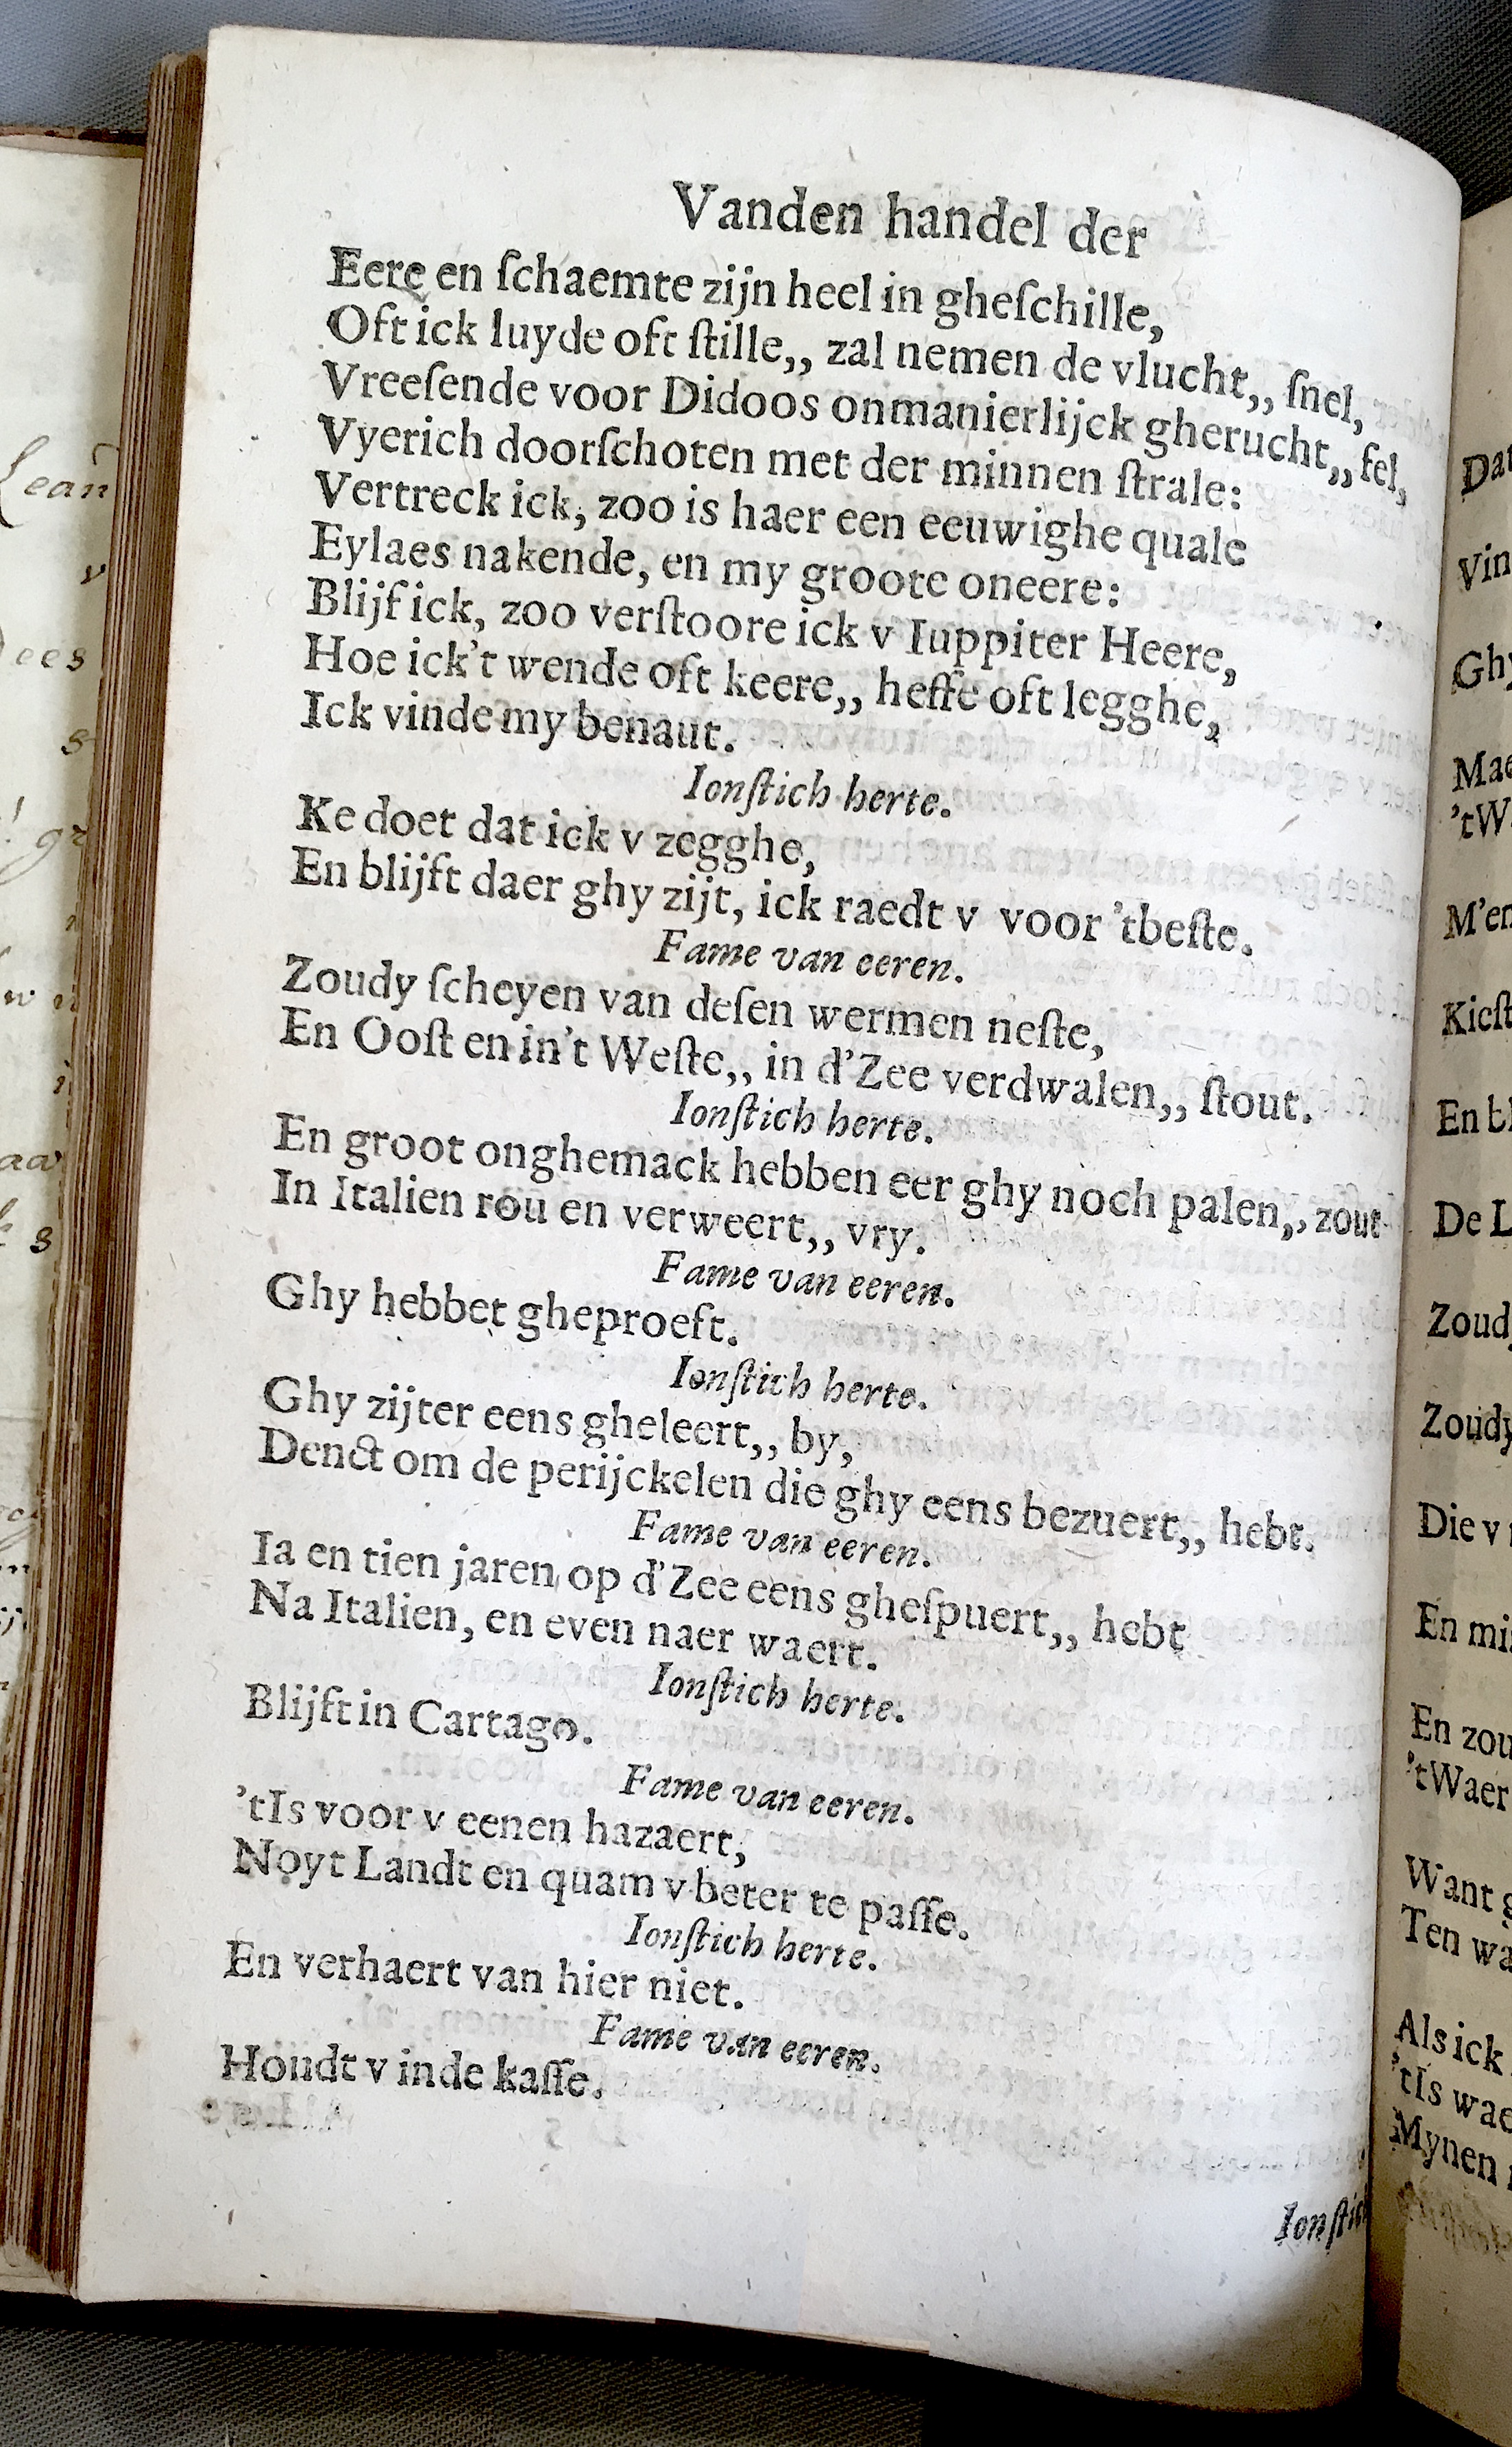 Vanden handel der
Eere en ſchaemte zijn heel in gheſchille,
Oft ick luyde oft ſtille,, zal nemen de vlucht,, ſnel,
Vreeſende voor Didoos onmanierlijck gherucht,, fel,
Vyerich doorſchoten met der minnen ſtrale:
Vertreck ick, zoo is haer een eeuwighe quale
Eylaes nakende, en my groote oneere:
Blijf ick, zoo verſtoore ick v Iuppiter Heere,
Hoe ick't wende oft keere,, heffe oft legghe,
Ick vinde my benaut.
Ionſtich herte.
Ke doet dat ick v zegghe,
En blijft daer ghy zijt, ick raedt v voor 'tbeſte.
Fame van eeren.
Zoudy ſcheyen van deſen wermen neſte,
En Ooſt en in't Weſte,, in d'Zee verdwalen,, ſtout.
Ionſtich herte.
En groot onghemack hebben eer ghy noch palen,, zout
In Italien rou en verweert,, vry.
Fame van eeren.
Ghy hebbet gheproeft.
Ionſtich herte.
Ghy zijter eens gheleert,, by,
Denct om de perijckelen die ghy eens bezuert,, hebt.
Fame van eeren.
Ia en tien jaren op d'Zee eens gheſpuert,, hebt
Na Italien, en even naer waert.
Ionſtich herte.
Blijft in Cartago.
Fame van eeren.
'tIs voor v eenen hazaert,
Noyt Landt en quam v beter te paſſe.
Ionſtich herte.
En verhaert van hier niet.
Fame van eeren.
Houdt v inde kaſſe.
Ionſtich
Dat
Vin
Ghy
Mae
'tW
M'en
Kieſt
En bl
De L
Zoud
Zoudy
Die v
En mi
En zou
'tWaer
Want g
Ten wa
Als ick
'tIs wae
Mynen